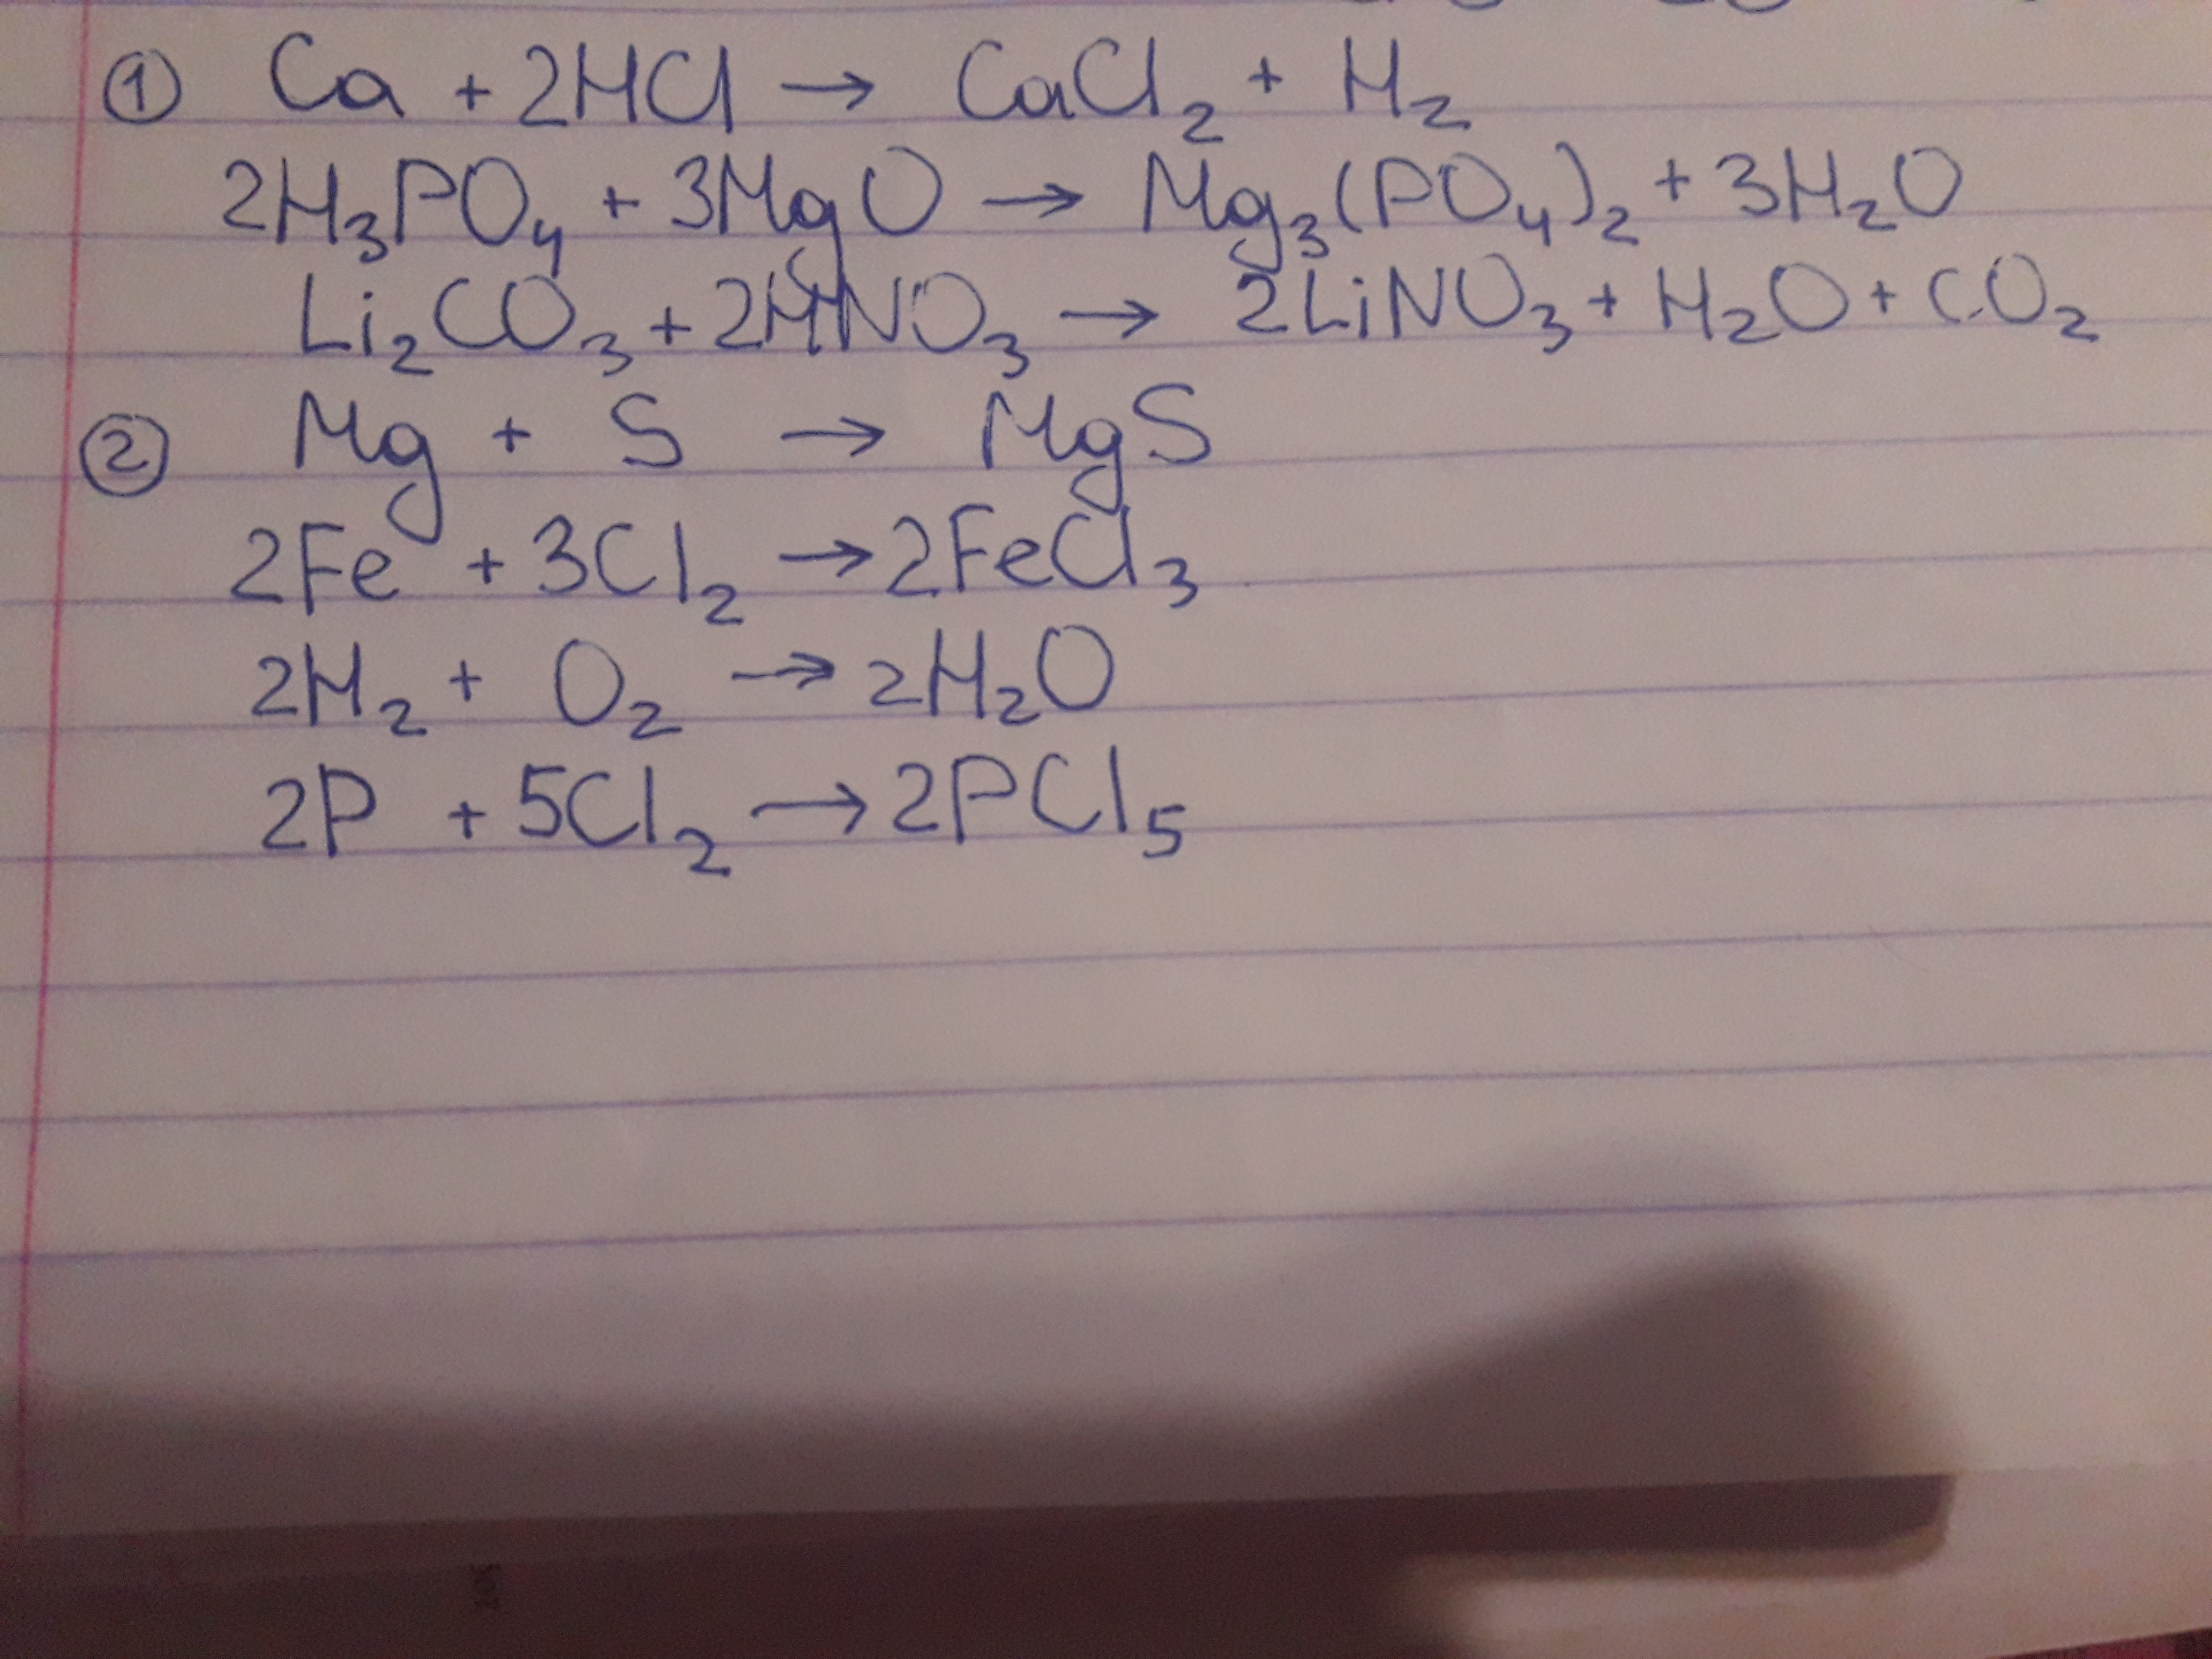 ① Ca + 2HCl → CaCl₂ + H₂
2H₃PO₄ + 3MgO → Mg₃(PO₄)₂ + 3H₂O
Li₂CO₃ + 2HNO₃ → 2LiNO₃ + H₂O + CO₂
② Mg + S → MgS
2Fe + 3Cl₂ → 2FeCl₃
2H₂ + O₂ → 2H₂O
2P + 5Cl₂ → 2PCl₅